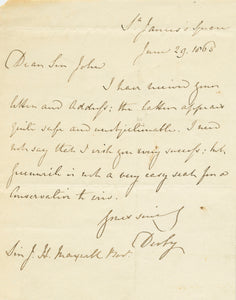 St. James's Square
June 29. 1868
Dear Sir John
I have received your
letter and Address; the latter appears
quite safe and unobjectionable. I need
not say that I wish you every success; but
Greenwich is not a very easy seat for a
Conservative to win.
Yours sincy
Derby
Sir J. H. Maxwell Bart.